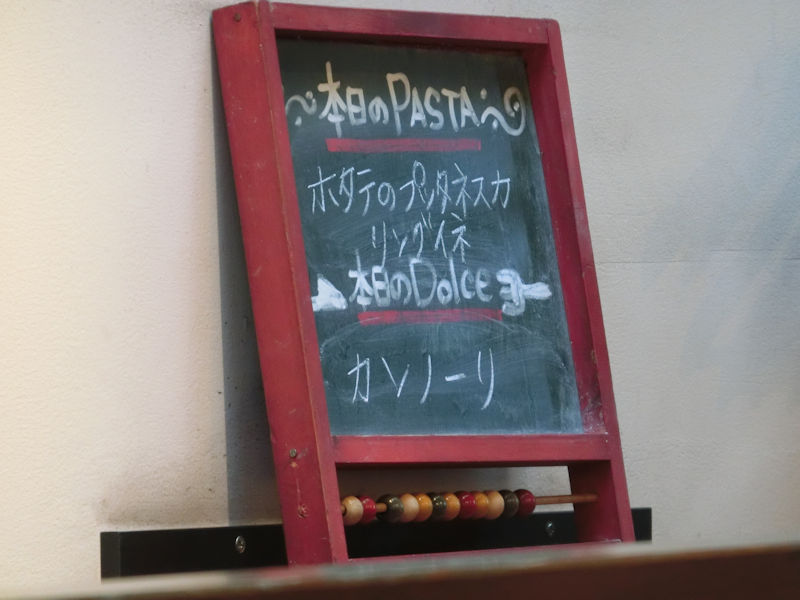 本日のPASTA
ホタテのプッタネスカ
リングイネ
本日のDolce
カンノーリ